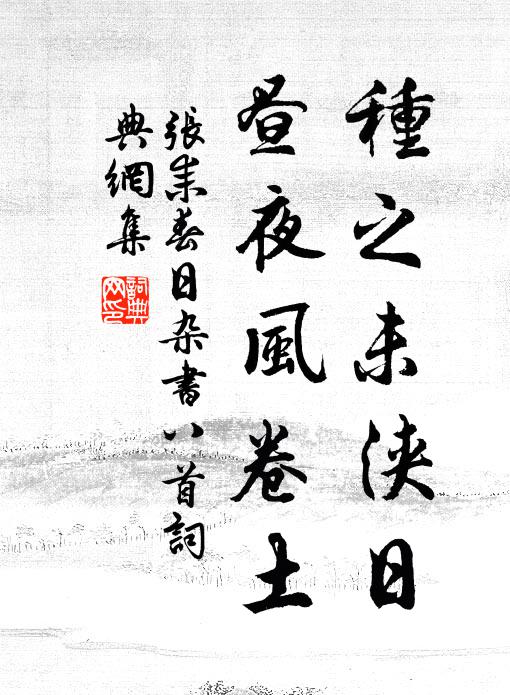 種之未浹日
昼夜風卷土
張耒春日杂書八首詞
典網集
詞典
网印